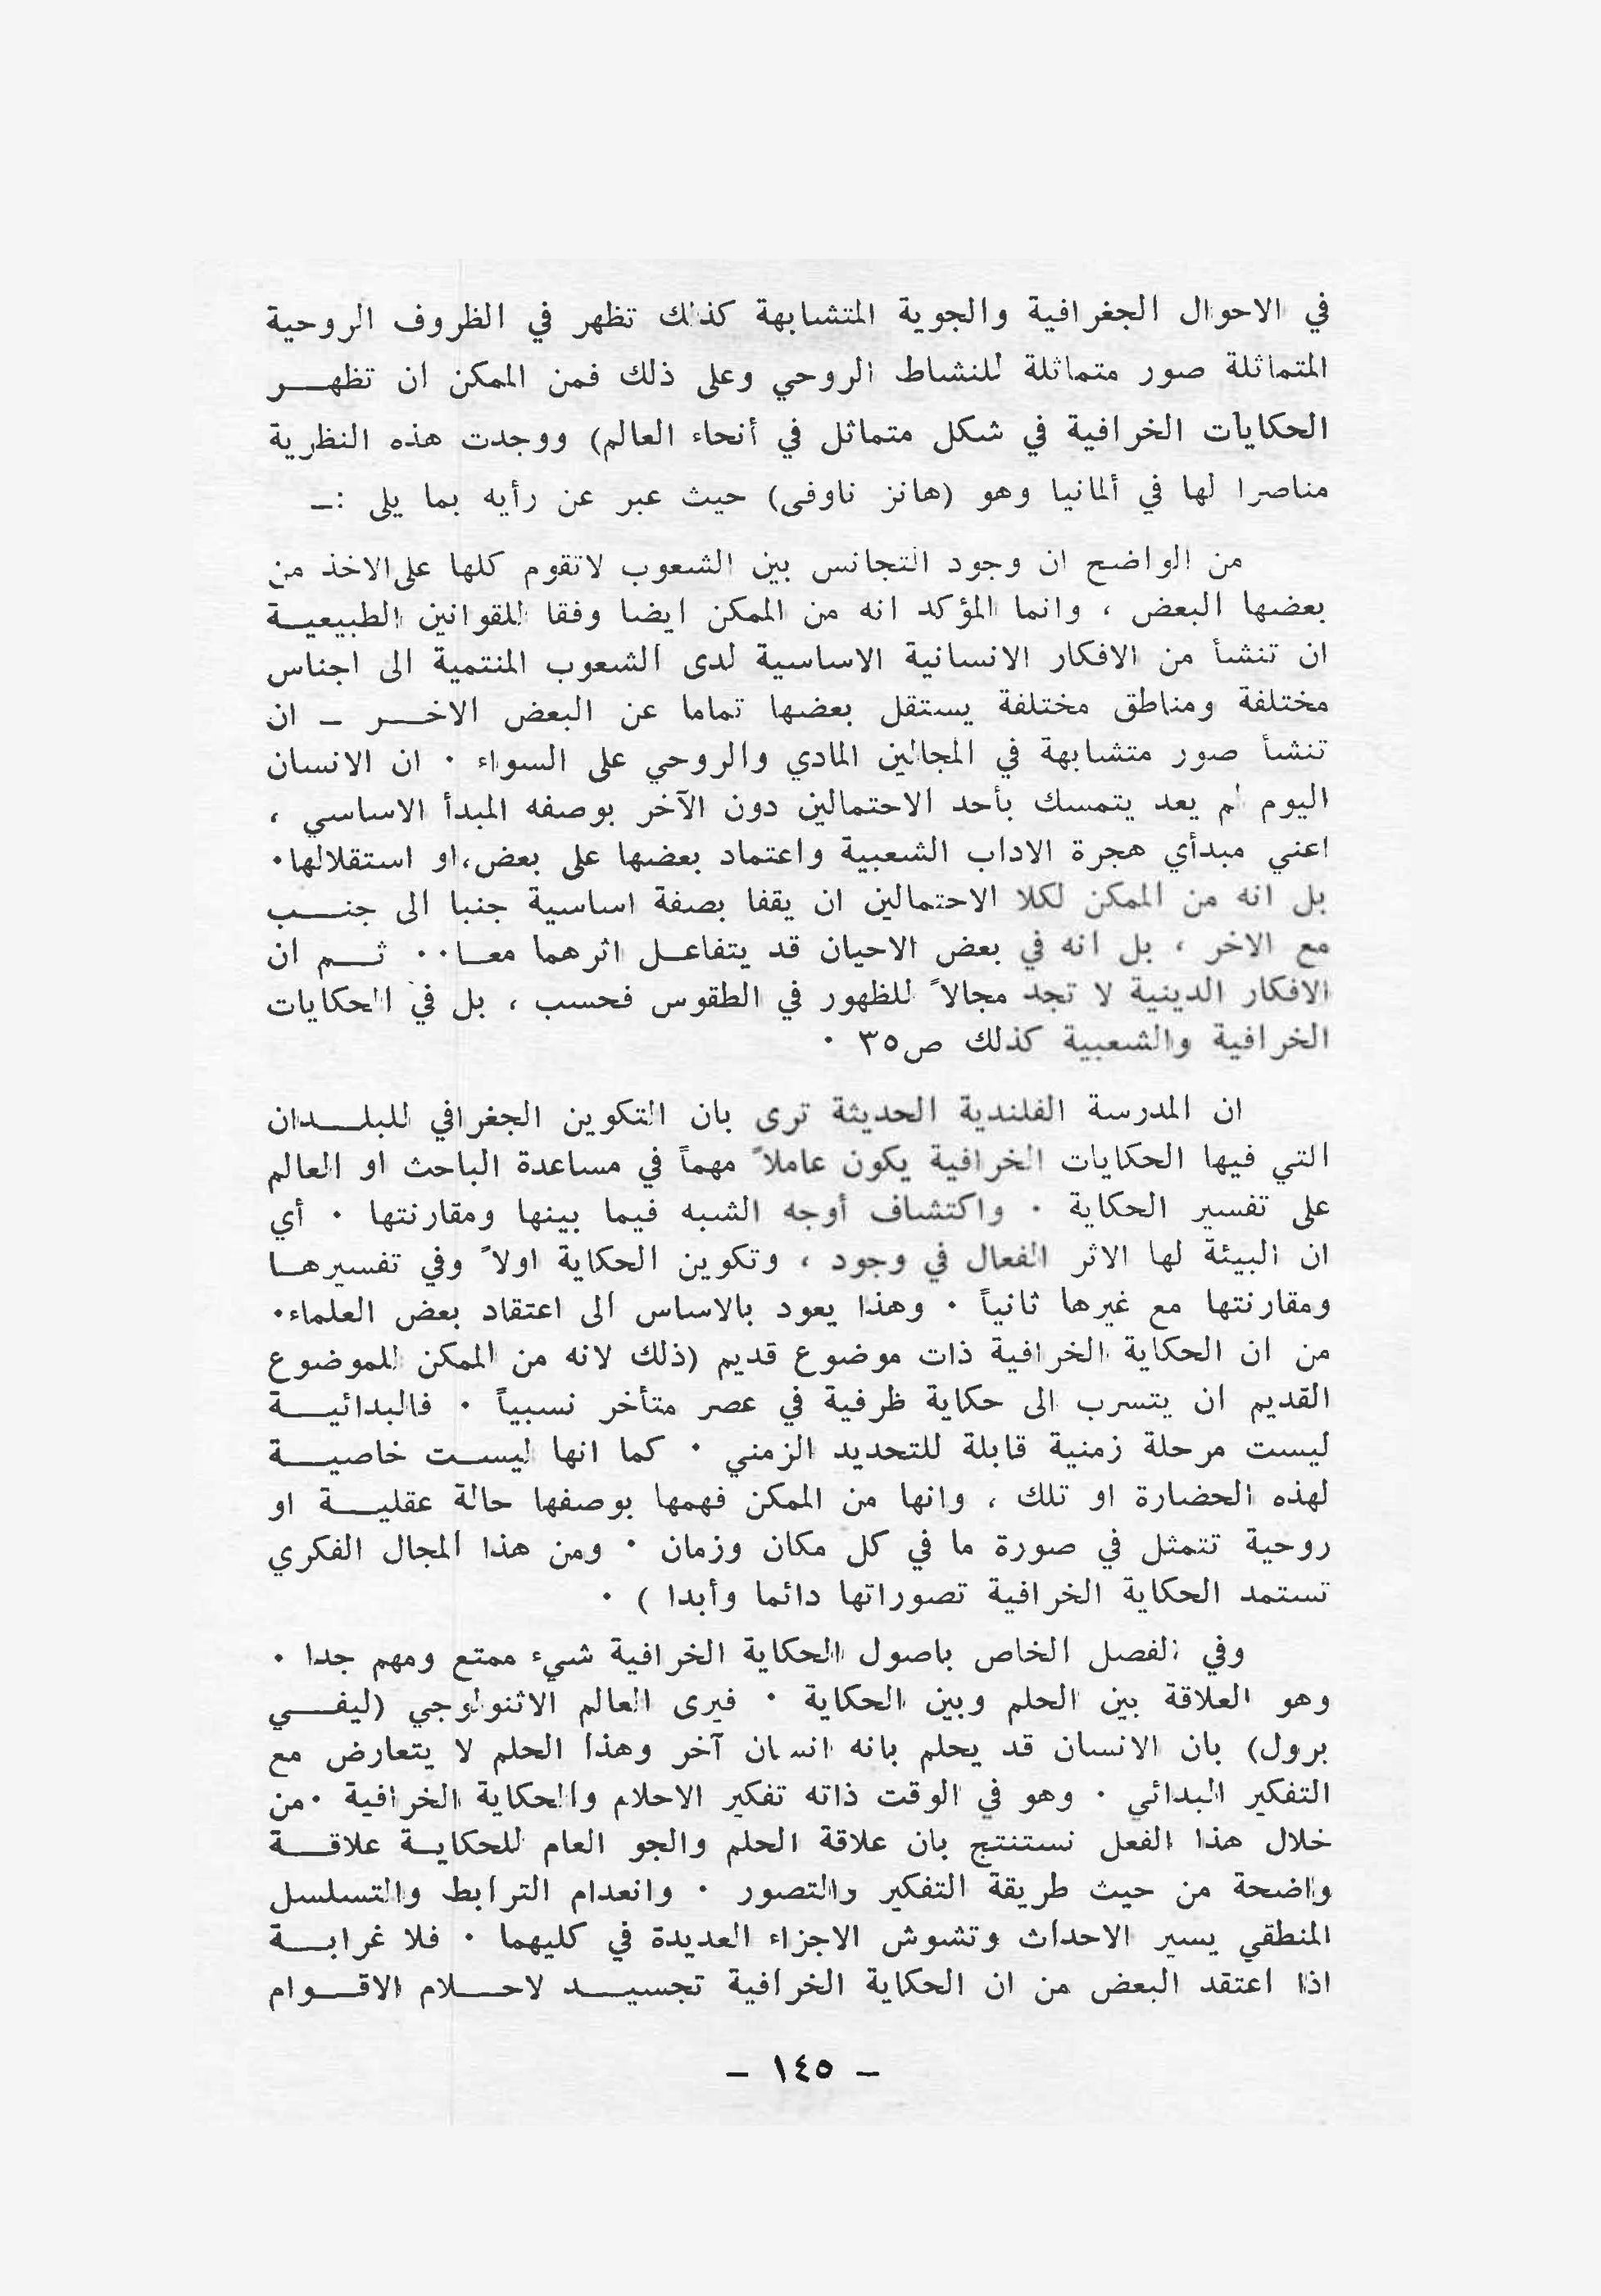 في الاحوال الجغرافية والجوية المتشابهة كذلك تظهر في الظروف الروحية
المتماثلة صور متماثلة للنشاط الروحي وعلى ذلك فمن الممكن ان تظهر
الحكايات الخرافية في شكل متماثل في أنحاء العالم) ووجدت هذه النظرية
مناصرا لها في ألمانيا وهو (هانز ناوفى) حيث عبر عن رأيه بما يلى :ـ
من الواضح ان وجود التجانس بين الشعوب لاتقوم كلها على الاخذ من
بعضها البعض ، وانما المؤكد انه من الممكن ايضا وفقا للقوانين الطبيعية
ان تنشأ من الافكار الانسانية الاساسية لدى الشعوب المنتمية الى اجناس
مختلفة ومناطق مختلفة يستقل بعضها تماما عن البعض الاخر ـ ان
تنشأ صور متشابهة في المجالين المادي والروحي على السواء ٠ ان الانسان
اليوم لم يعد يتمسك بأحد الاحتمالين دون الآخر بوصفه المبدأ الاساسي ،
اعني مبدأي هجرة الاداب الشعبية واعتماد بعضها على بعض،او استقلالها٠
بل انه من الممكن لكلا الاحتمالين ان يقفا بصفة اساسية جنبا الى جنب
مع الاخر ، بل انه في بعض الاحيان قد يتفاعل اثرهما معا٠٠ ثم ان
الافكار الدينية لا تجد مجالاً للظهور في الطقوس فحسب ، بل في الحكايات
الخرافية والشعبية كذلك ص٣٥ ٠
ان المدرسة الفلندية الحديثة ترى بان التكوين الجغرافي للبلدان
التي فيها الحكايات الخرافية يكون عاملاً مهماً في مساعدة الباحث او العالم
على تفسير الحكاية ٠ واكتشاف أوجه الشبه فيما بينها ومقارنتها ٠ أي
ان البيئة لها الاثر الفعال في وجود ، وتكوين الحكاية اولاً وفي تفسيرها
ومقارنتها مع غيرها ثانياً ٠ وهذا يعود بالاساس الى اعتقاد بعض العلماء٠
من ان الحكاية الخرافية ذات موضوع قديم (ذلك لانه من الممكن للموضوع
القديم ان يتسرب الى حكاية ظرفية في عصر متأخر نسبياً ٠ فالبدائية
ليست مرحلة زمنية قابلة للتحديد الزمني ٠ كما انها ليست خاصية
لهذه الحضارة او تلك ، وانها من الممكن فهمها بوصفها حالة عقلية او
روحية تتمثل في صورة ما في كل مكان وزمان ٠ ومن هذا المجال الفكري
تستمد الحكاية الخرافية تصوراتها دائما وأبدا ) ٠
وفي الفصل الخاص باصول الحكاية الخرافية شيء ممتع ومهم جدا ٠
وهو العلاقة بين الحلم وبين الحكاية ٠ فيرى العالم الاثنولوجي (ليفي
برول) بان الانسان قد يحلم بانه انسان آخر وهذا الحلم لا يتعارض مع
التفكير البدائي ٠ وهو في الوقت ذاته تفكير الاحلام والحكاية الخرافية ٠من
خلال هذا الفعل نستنتج بان علاقة الحلم والجو العام للحكاية علاقة
واضحة من حيث طريقة التفكير والتصور ٠ وانعدام الترابط والتسلسل
المنطقي يسير الاحداث وتشوش الاجزاء العديدة في كليهما ٠ فلا غرابة
اذا اعتقد البعض من ان الحكاية الخرافية تجسيد لاحلام الاقوام
ـ ١٤٥ ـ